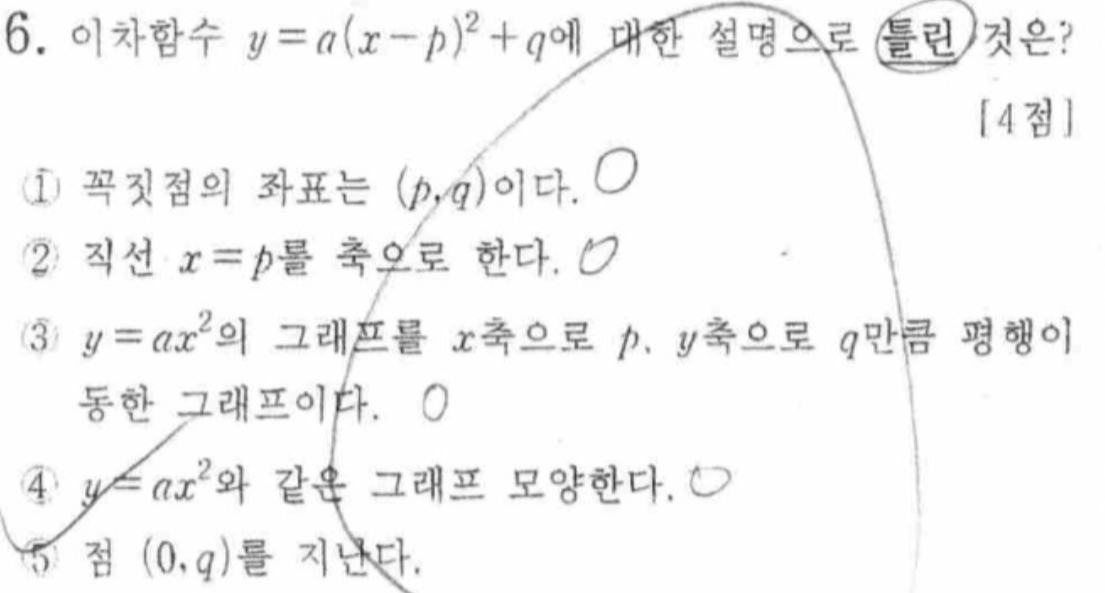 6. 이차함수 y=a(x-p)²+q에 대한 설명으로 틀린 것은?
[4점]
① 꼭짓점의 좌표는 (p, q)이다.
② 직선 x=p를 축으로 한다.
③ y=ax²의 그래프를 x축으로 p, y축으로 q만큼 평행이
동한 그래프이다.
④ y=ax²와 같은 그래프 모양한다.
⑤ 점 (0, q)를 지난다.